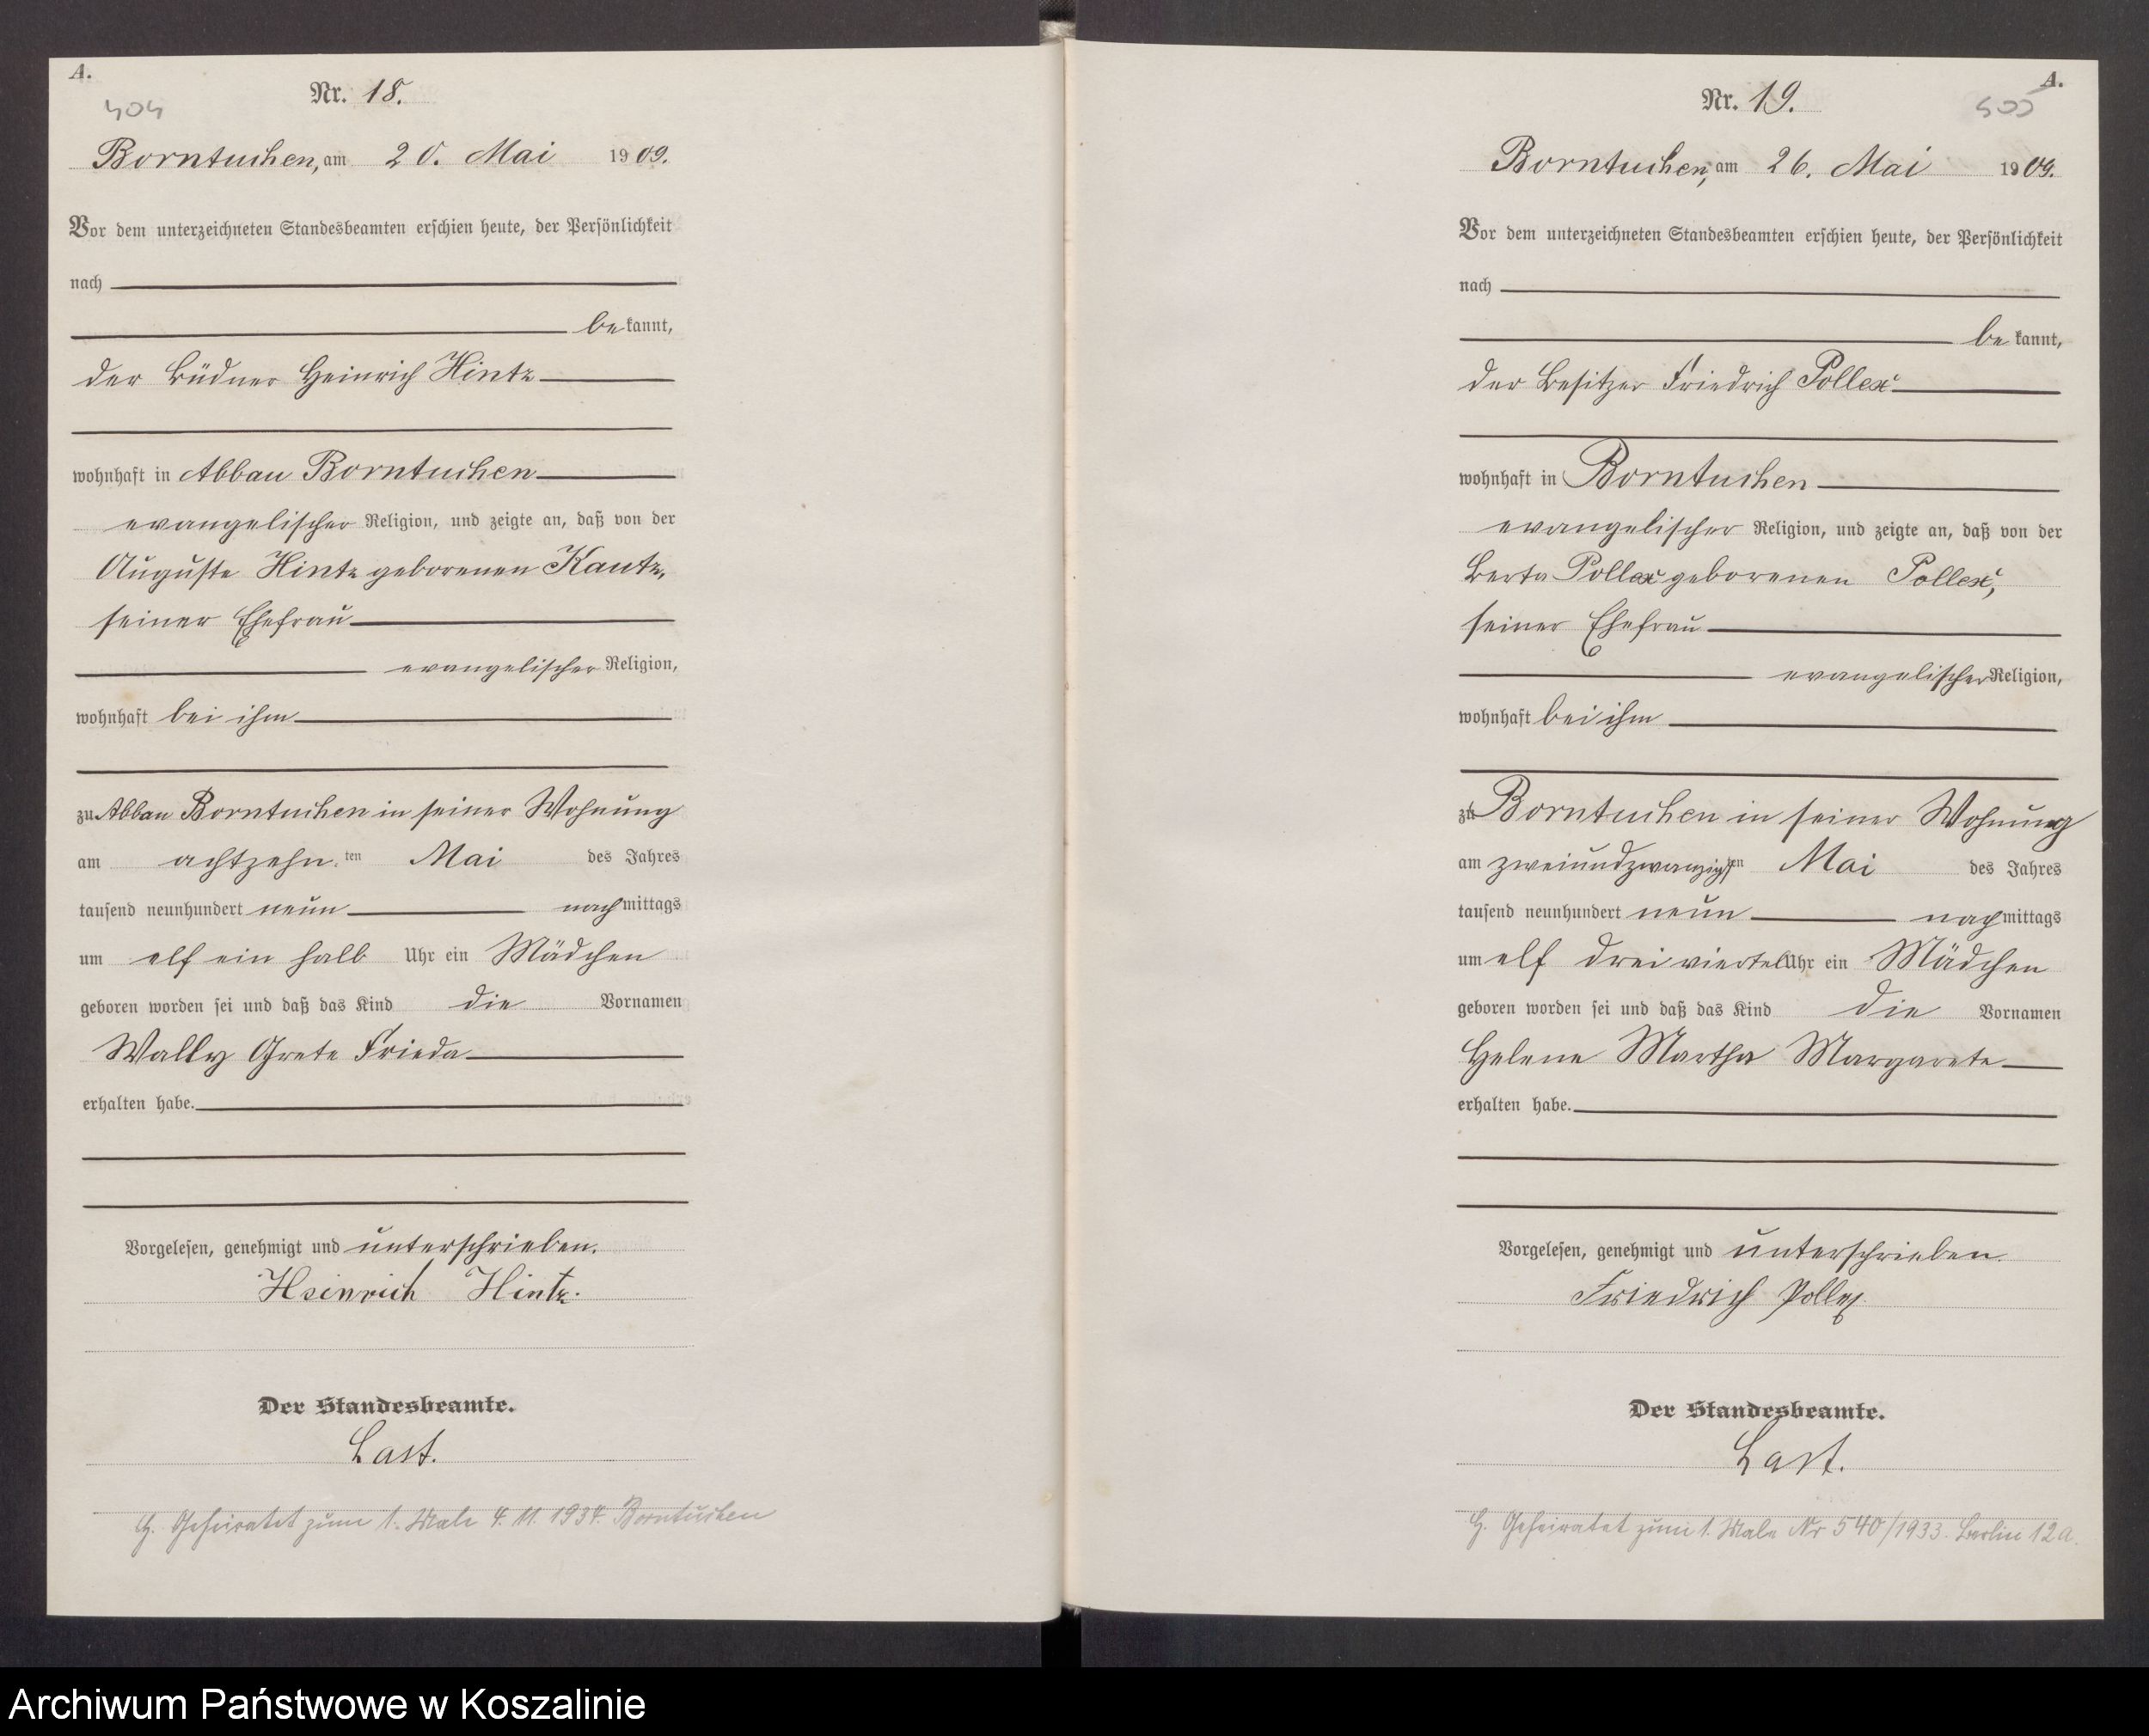 A.
Nr. 18.
404
Borntuchen, am 20. Mai 1909.
Vor dem unterzeichneten Standesbeamten erschien heute, der Persönlichkeit
nach
bekannt,
der Büdner Heinrich Hintz
wohnhaft in Abbau Borntuchen
evangelischer Religion, und zeigte an, daß von der
Auguste Hintz geborenen Kautz,
seiner Ehefrau
evangelischer Religion,
wohnhaft bei ihm
zu Abbau Borntuchen in seiner Wohnung
am achtzehn ten Mai des Jahres
tausend neunhundert neun nachmittags
um elf ein halb Uhr ein Mädchen
geboren worden sei und daß das Kind die Vornamen
Wally Grete Frieda
erhalten habe.
Vorgelesen, genehmigt und unterschrieben.
Heinrich Hintz.
Der Standesbeamte.
Last.
G. Geheiratet zum 1. Male 4. 11. 1934. Borntuchen
A.
Nr. 19.
405
Borntuchen, am 26. Mai 1909.
Vor dem unterzeichneten Standesbeamten erschien heute, der Persönlichkeit
nach
bekannt,
der Besitzer Friedrich Pollex
wohnhaft in Borntuchen
evangelischer Religion, und zeigte an, daß von der
Berta Pollex geborenen Pollex,
seiner Ehefrau
evangelischer Religion,
wohnhaft bei ihm
zu Borntuchen in seiner Wohnung
am zweiundzwanzigsten Mai des Jahres
tausend neunhundert neun nachmittags
um elf dreiviertel Uhr ein Mädchen
geboren worden sei und daß das Kind die Vornamen
Helene Martha Margarete
erhalten habe.
Vorgelesen, genehmigt und unterschrieben.
Friedrich Pollex
Der Standesbeamte.
Last.
G. Geheiratet zum 1. Male Nr 540/1933. Berlin 12a.
Archiwum Państwowe w Koszalinie